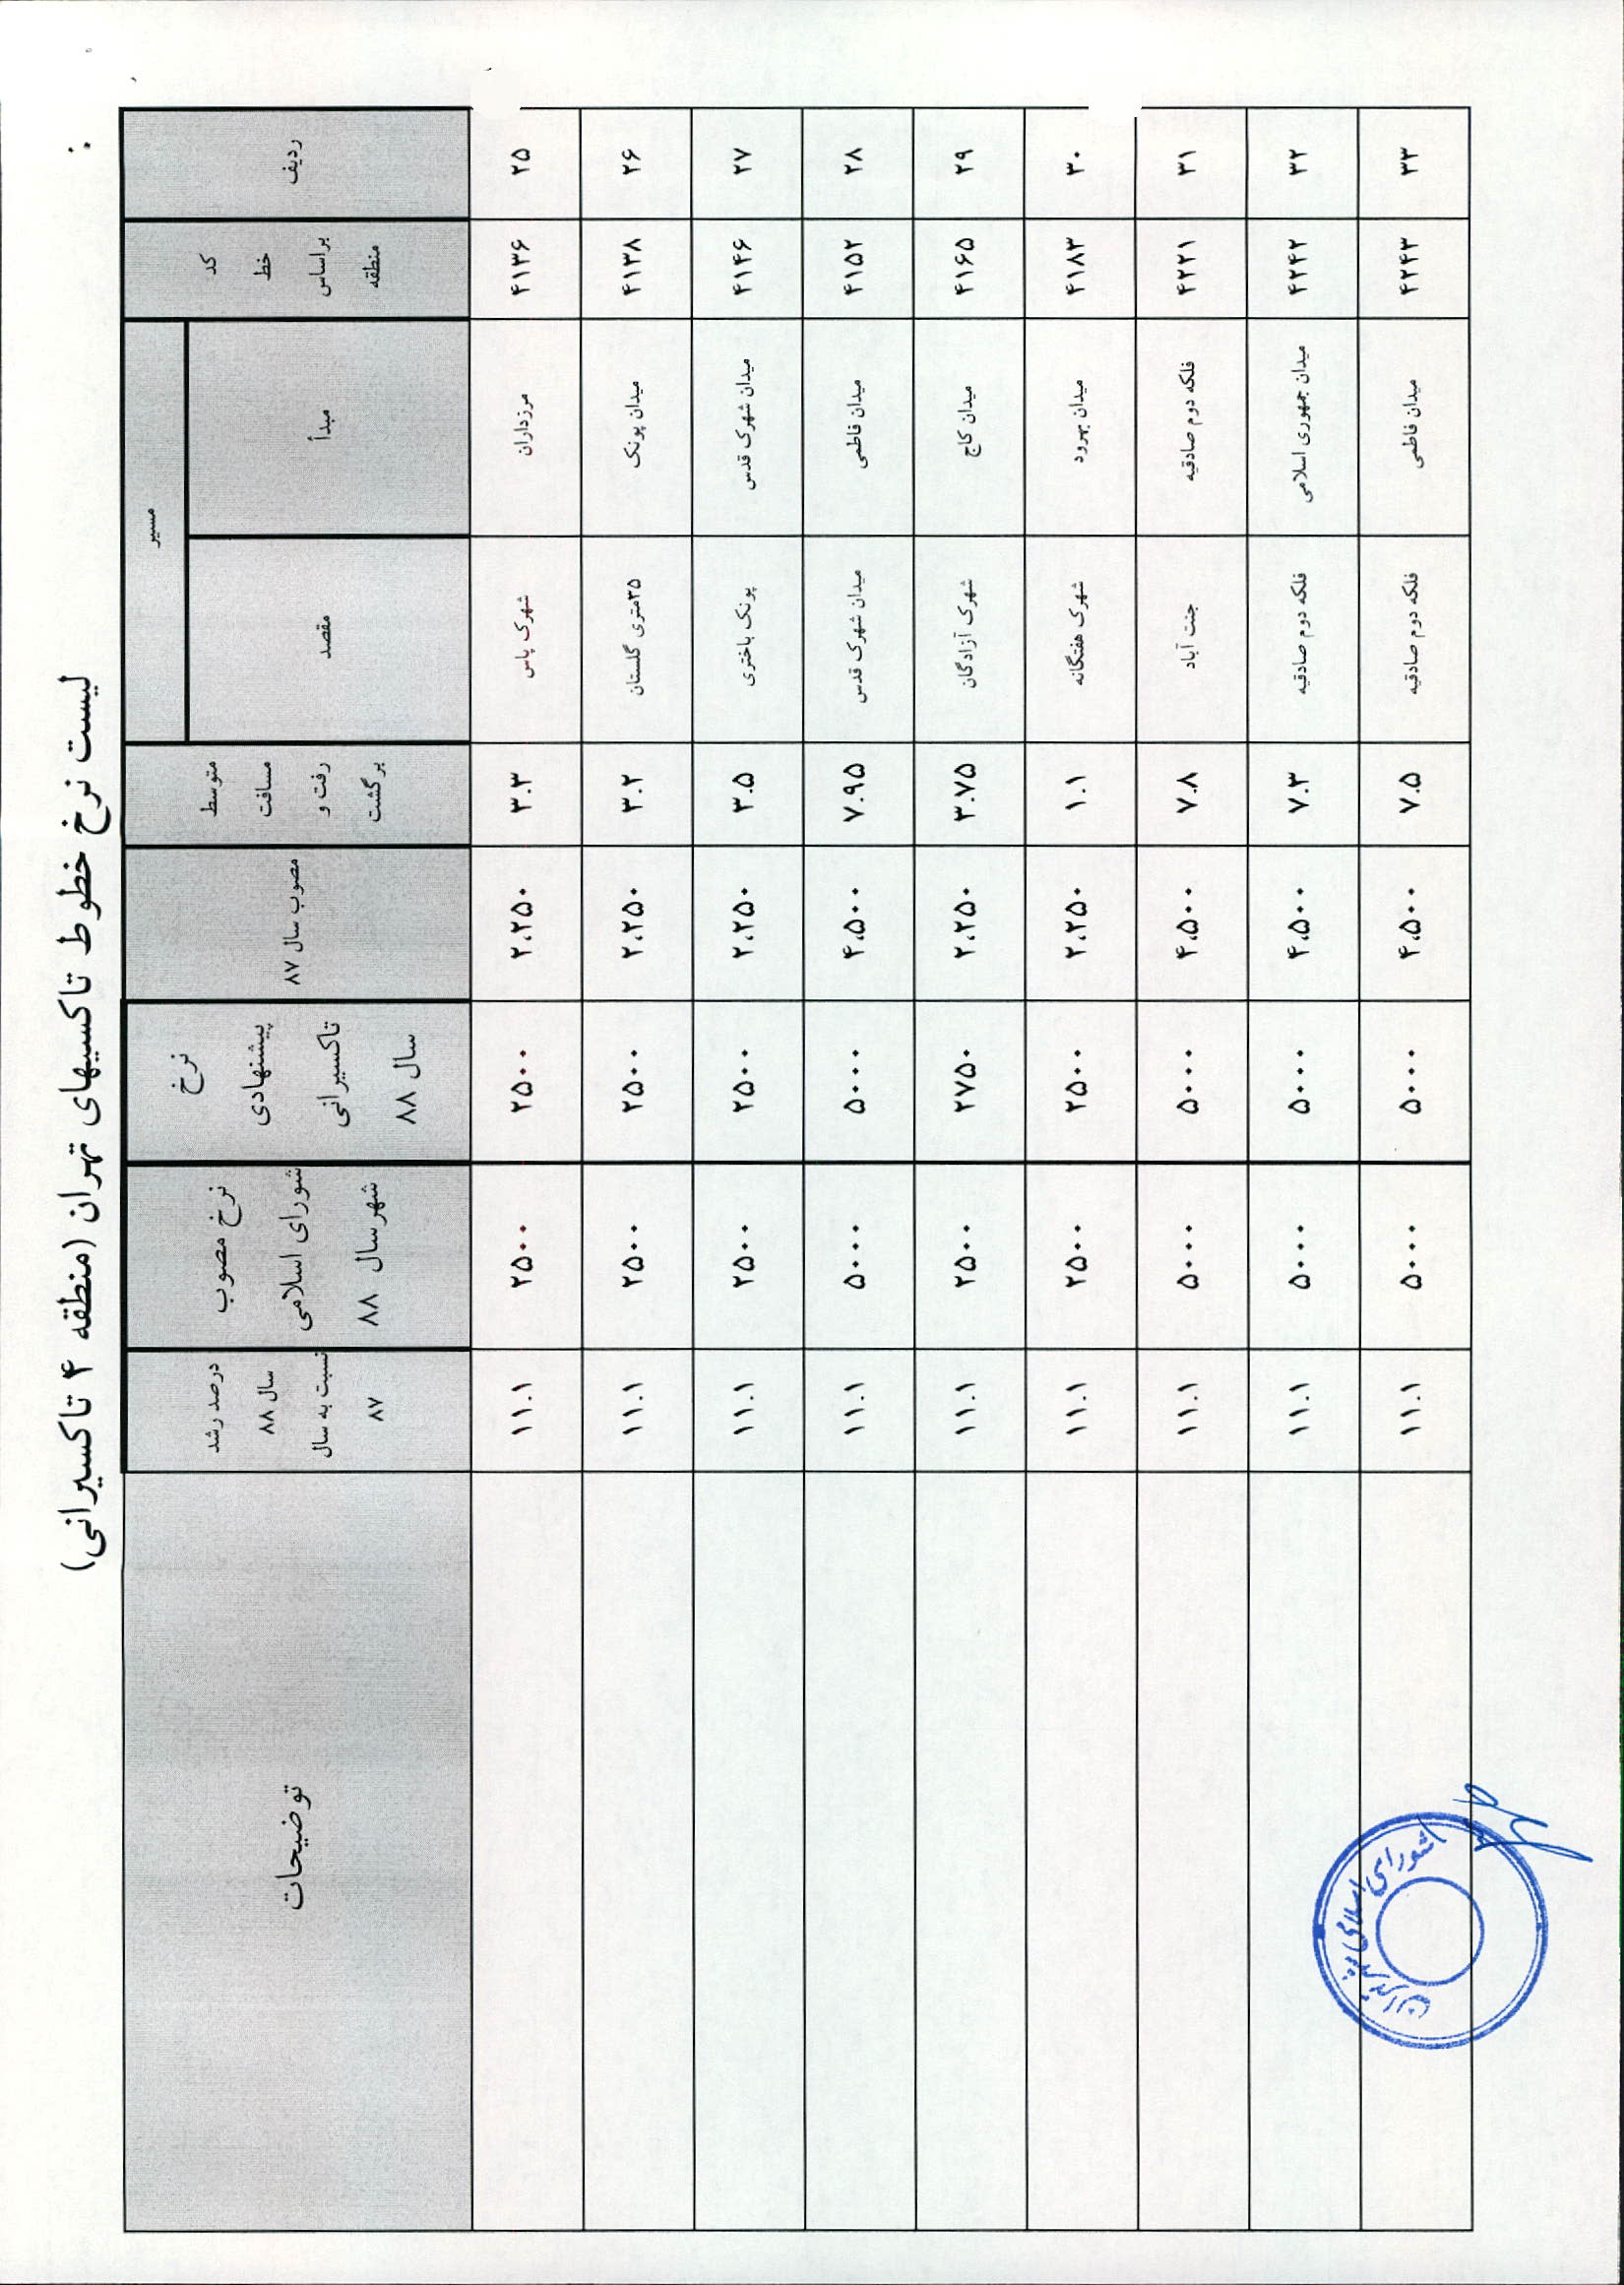 لیست نرخ خطوط تاکسیهای تهران (منطقه ۴ تاکسیرانی)
ردیف | کد خط براساس منطقه | مسیر | متوسط مسافت رفت و برگشت | مصوب سال ۸۷ | نرخ پیشنهادی تاکسیرانی سال ۸۸ | نرخ مصوب شورای اسلامی شهر سال ۸۸ | درصد رشد سال ۸۸ نسبت به سال ۸۷ | توضیحات
مبدأ | مقصد
۲۵ | ۴۱۳۶ | مرزداران | شهرک یاس | ۳.۳ | ۲،۲۵۰ | ۲۵۰۰ | ۲۵۰۰ | ۱۱.۱
۲۶ | ۴۱۳۸ | میدان پونک | ۳۵متری گلستان | ۳.۲ | ۲،۲۵۰ | ۲۵۰۰ | ۲۵۰۰ | ۱۱.۱
۲۷ | ۴۱۴۶ | میدان شهرک قدس | پونک باختری | ۳.۵ | ۲،۲۵۰ | ۲۵۰۰ | ۲۵۰۰ | ۱۱.۱
۲۸ | ۴۱۵۲ | میدان فاطمی | میدان شهرک قدس | ۷.۹۵ | ۴،۵۰۰ | ۵۰۰۰ | ۵۰۰۰ | ۱۱.۱
۲۹ | ۴۱۶۵ | میدان کاج | شهرک آزادگان | ۳.۷۵ | ۲،۲۵۰ | ۲۷۵۰ | ۲۵۰۰ | ۱۱.۱
۳۰ | ۴۱۸۳ | میدان بهرود | شهرک هفتگانه | ۱.۱ | ۲،۲۵۰ | ۲۵۰۰ | ۲۵۰۰ | ۱۱.۱
۳۱ | ۴۲۲۱ | فلکه دوم صادقیه | جنت آباد | ۷.۸ | ۴،۵۰۰ | ۵۰۰۰ | ۵۰۰۰ | ۱۱.۱
۳۲ | ۴۲۴۲ | میدان جمهوری اسلامی | فلکه دوم صادقیه | ۷.۳ | ۴،۵۰۰ | ۵۰۰۰ | ۵۰۰۰ | ۱۱.۱
۳۳ | ۴۲۴۳ | میدان فاطمی | فلکه دوم صادقیه | ۷.۵ | ۴،۵۰۰ | ۵۰۰۰ | ۵۰۰۰ | ۱۱.۱
شورای اسلامی شهر تهران